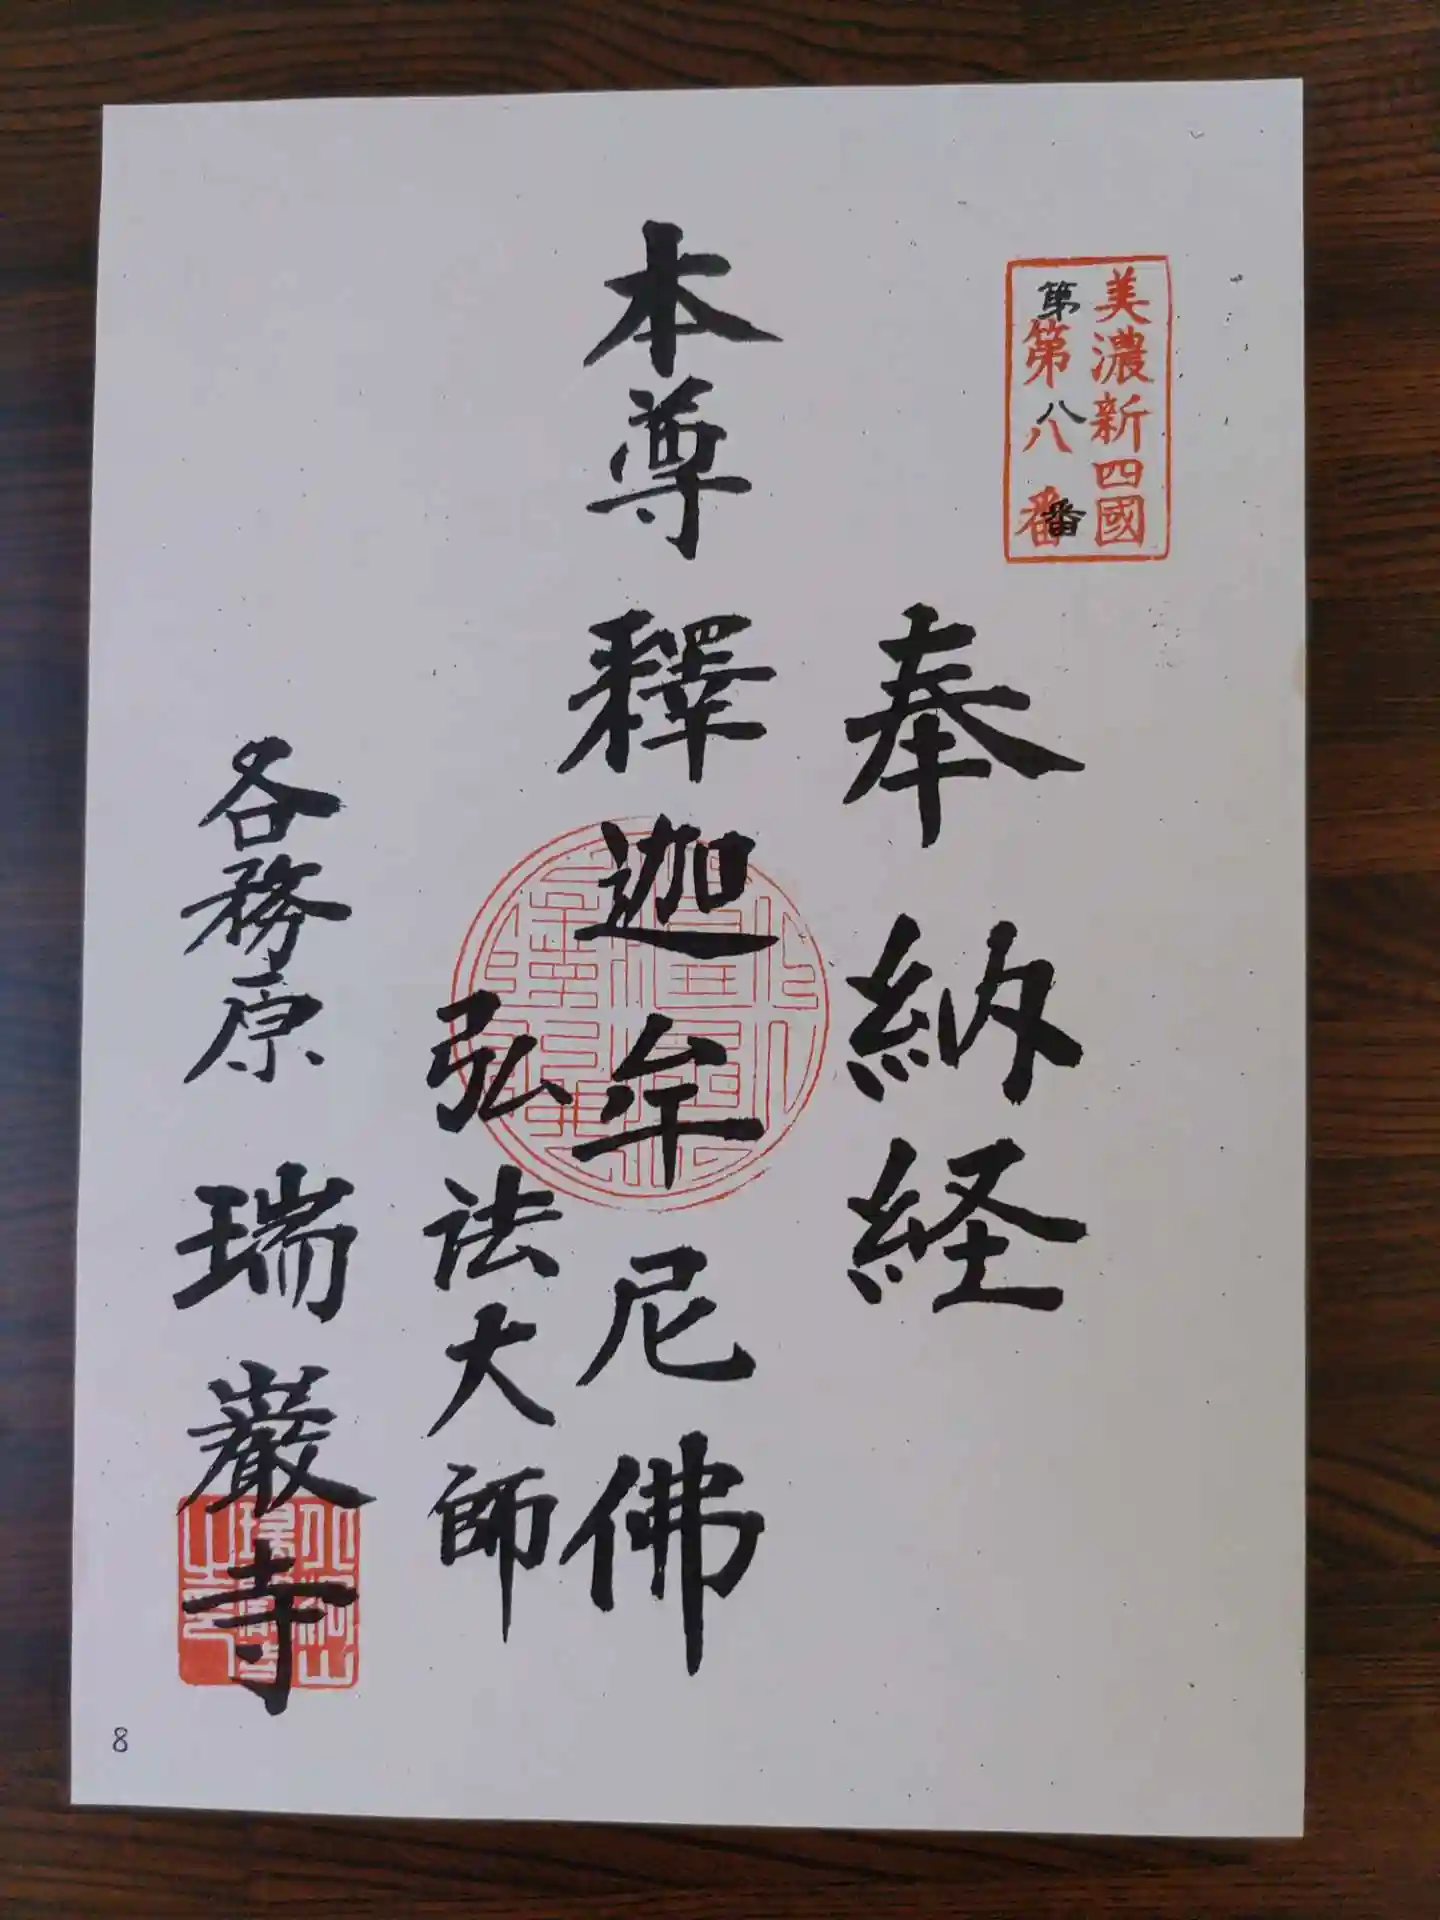 美濃新四國
第八番
第八番
奉納経
本尊 釋迦牟尼佛
弘法大師
各務原 瑞巖寺
8